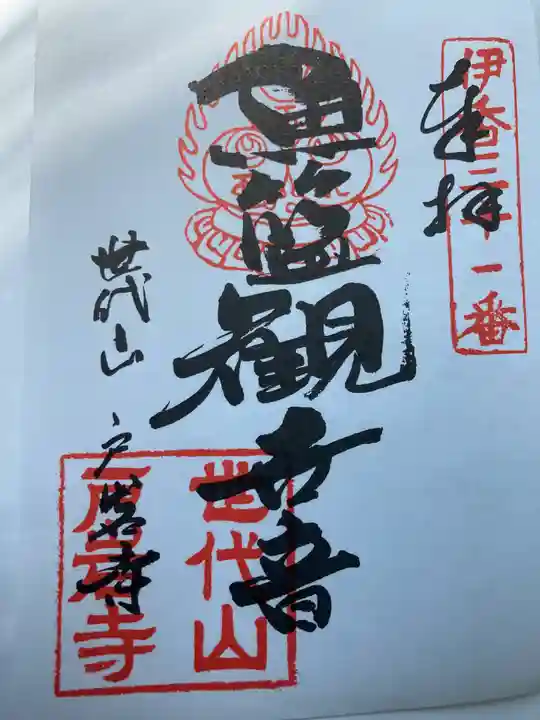 伊香三十一番
奉拝
魚籃観世音
世代山
戸岩寺
世代山
戸岩寺